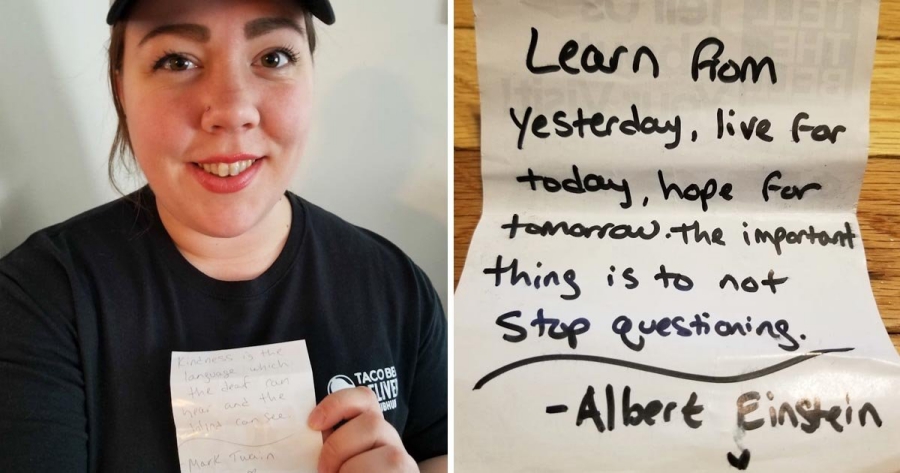 Kindness is the
language which
the deaf can
hear and the
blind can see.
Mark Twain
TACO BE
ELIVE
Learn from
yesterday, live for
today, hope for
tomorrow. The important
thing is to not
Stop questioning.
- Albert Einstein